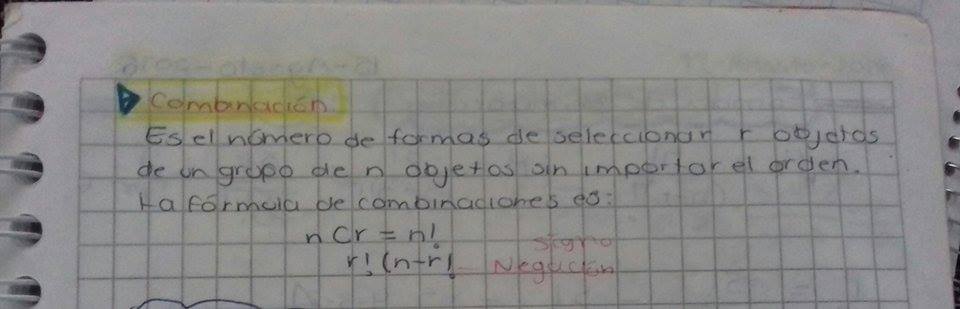 Combinación
Es el número de formas de seleccionar r objetos
de un grupo de n objetos sin importar el orden.
La fórmula de combinaciones es:
nCr = n!
r! (n-r! 
signo
Negación